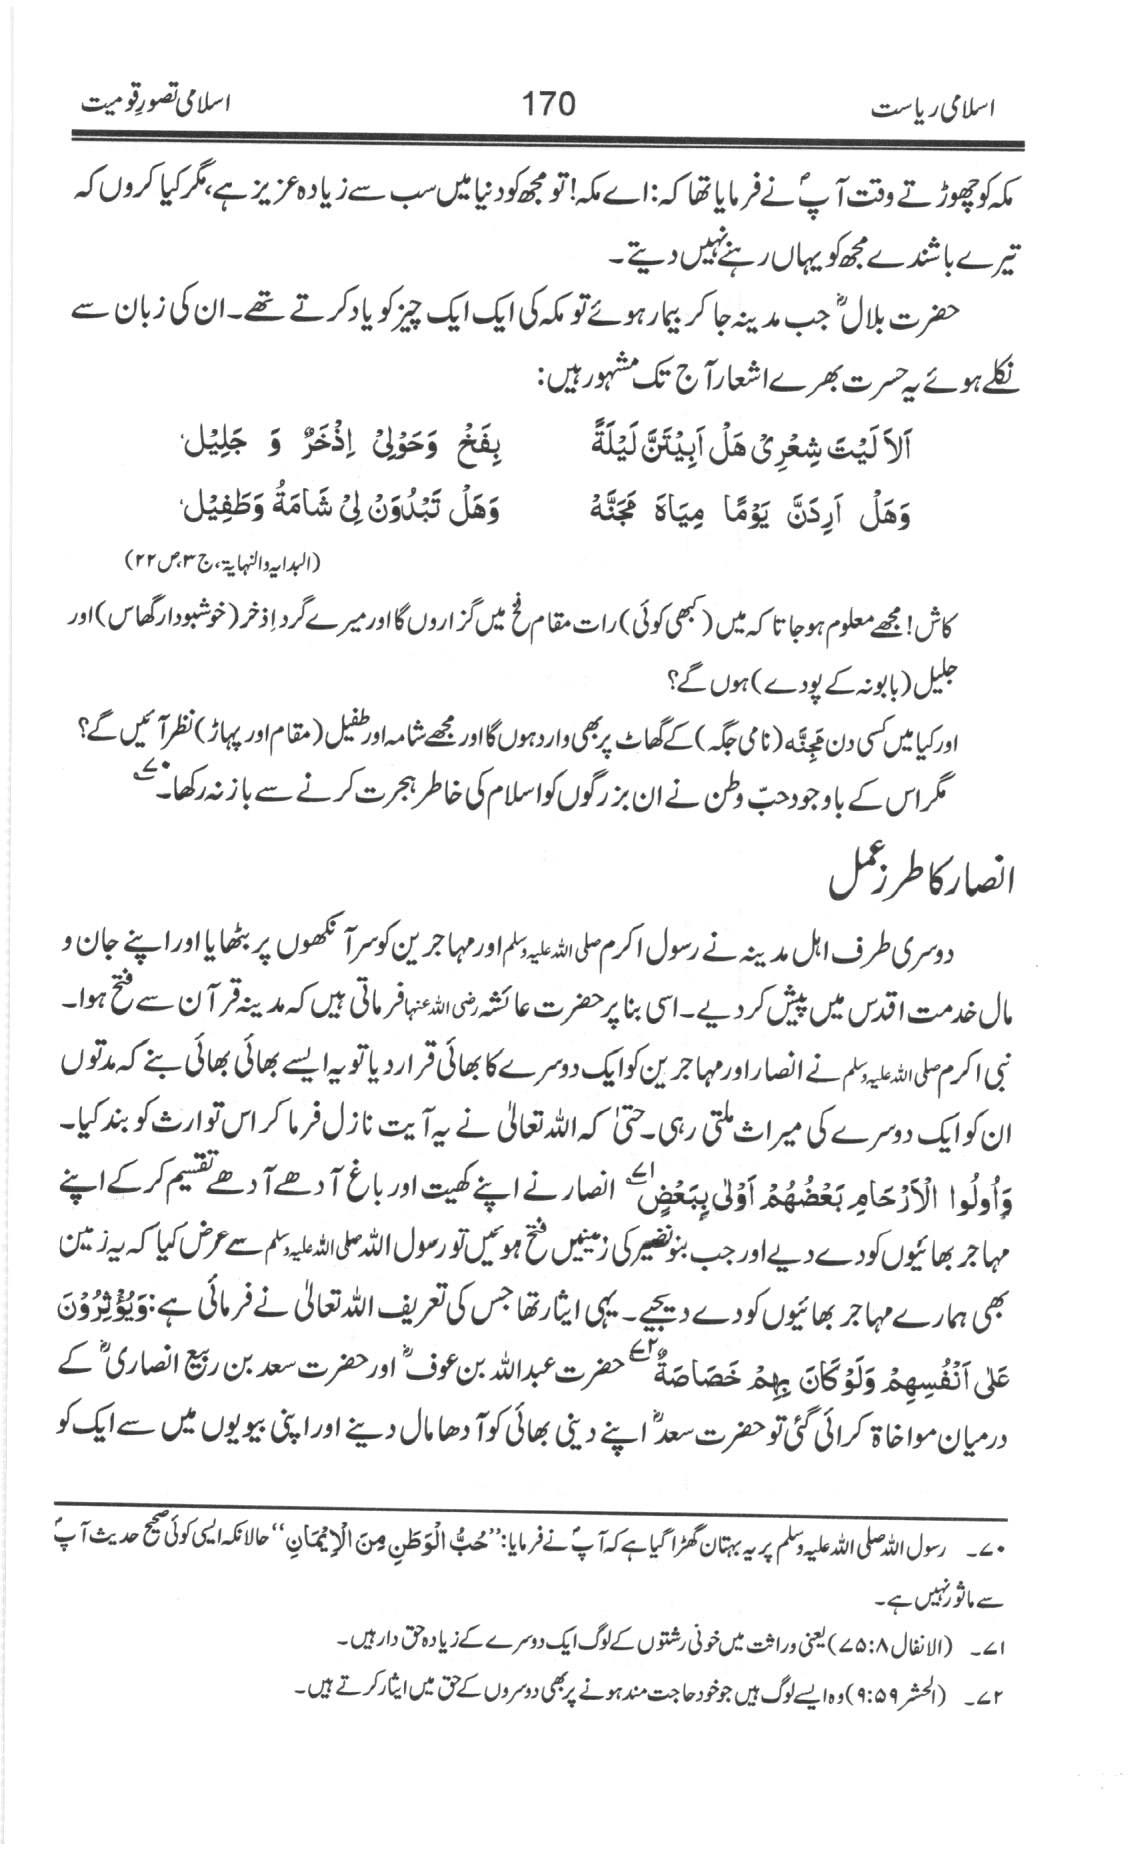 اسلامی ریاست 170 اسلامی تصورِ قومیت
مکہ کو چھوڑتے وقت آپؐ نے فرمایا تھا کہ: اے مکہ! تو مجھ کو دنیا میں سب سے زیادہ عزیز ہے، مگر کیا کروں کہ
تیرے باشندے مجھ کو یہاں رہنے نہیں دیتے۔
حضرت بلالؓ جب مدینہ جا کر بیمار ہوئے تو مکہ کی ایک ایک چیز کو یاد کرتے تھے۔ ان کی زبان سے
نکلے ہوئے یہ حسرت بھرے اشعار آج تک مشہور ہیں:
اَلاَ لَیْتَ شِعْرِیْ هَلْ اَبِیْتَنَّ لَیْلَةً بِفَخْ وَحَوْلِیْ اِذْخَرٌ وَ جَلِیْل،
وَهَلْ اَرِدَنَّ یَوْمًا مِیَاهَ مَجَنَّهْ وَهَلْ تَبْدُوَنْ لِیْ شَامَةُ وَطَفِیْل،
(البدایہ والنہایۃ، ج ۳، ص ۲۲)
کاش! مجھے معلوم ہو جاتا کہ میں (کبھی کوئی) رات مقام فخ میں گزاروں گا اور میرے گرد اِذخر (خوشبودار گھاس) اور
جلیل (بابونہ کے پودے) ہوں گے؟
اور کیا میں کسی دن مَجِنَّہ (نامی جگہ) کے گھاٹ پر بھی وارد ہوں گا اور مجھے شامہ اور طفیل (مقام اور پہاڑ) نظر آئیں گے؟
مگر اس کے باوجود حبّ وطن نے ان بزرگوں کو اسلام کی خاطر ہجرت کرنے سے باز نہ رکھا۔۷۰
انصار کا طرزِ عمل
دوسری طرف اہل مدینہ نے رسول اکرم صلی اللہ علیہ وسلم اور مہاجرین کو سر آنکھوں پر بٹھایا اور اپنے جان و
مال خدمت اقدس میں پیش کر دیے۔ اسی بنا پر حضرت عائشہ رضی اللہ عنہا فرماتی ہیں کہ مدینہ قرآن سے فتح ہوا۔
نبی اکرم صلی اللہ علیہ وسلم نے انصار اور مہاجرین کو ایک دوسرے کا بھائی قرار دیا تو یہ ایسے بھائی بھائی بنے کہ مدتوں
ان کو ایک دوسرے کی میراث ملتی رہی۔ حتیٰ کہ اللہ تعالیٰ نے یہ آیت نازل فرما کر اس توارث کو بند کیا۔
وَاُولُوا الْاَرْحَامِ بَعْضُهُمْ اَوْلٰى بِبَعْضٍ۷۱ انصار نے اپنے کھیت اور باغ آدھے آدھے تقسیم کر کے اپنے
مہاجر بھائیوں کو دے دیے اور جب بنو نضیر کی زمینیں فتح ہوئیں تو رسول اللہ صلی اللہ علیہ وسلم سے عرض کیا کہ یہ زمین
بھی ہمارے مہاجر بھائیوں کو دے دیجیے۔ یہی ایثار تھا جس کی تعریف اللہ تعالیٰ نے فرمائی ہے: وَیُؤْثِرُوْنَ
عَلٰى اَنْفُسِهِمْ وَلَوْ كَانَ بِهِمْ خَصَاصَةٌ۷۲ حضرت عبداللہ بن عوفؓ اور حضرت سعد بن ربیع انصاریؓ کے
درمیان مواخاۃ کرائی گئی تو حضرت سعدؓ اپنے دینی بھائی کو آدھا مال دینے اور اپنی بیویوں میں سے ایک کو
۷۰۔ رسول اللہ صلی اللہ علیہ وسلم پر یہ بہتان گھڑا گیا ہے کہ آپؐ نے فرمایا: ’’حُبُّ الْوَطَنِ مِنَ الْاِیْمَانِ‘‘ حالانکہ ایسی کوئی صحیح حدیث آپؐ
سے ماثور نہیں ہے۔
۷۱۔ (الانفال ۸:۷۵) یعنی وراثت میں خونی رشتوں کے لوگ ایک دوسرے کے زیادہ حق دار ہیں۔
۷۲۔ (الحشر ۵۹:۹) وہ ایسے لوگ ہیں جو خود حاجت مند ہونے پر بھی دوسروں کے حق میں ایثار کرتے ہیں۔